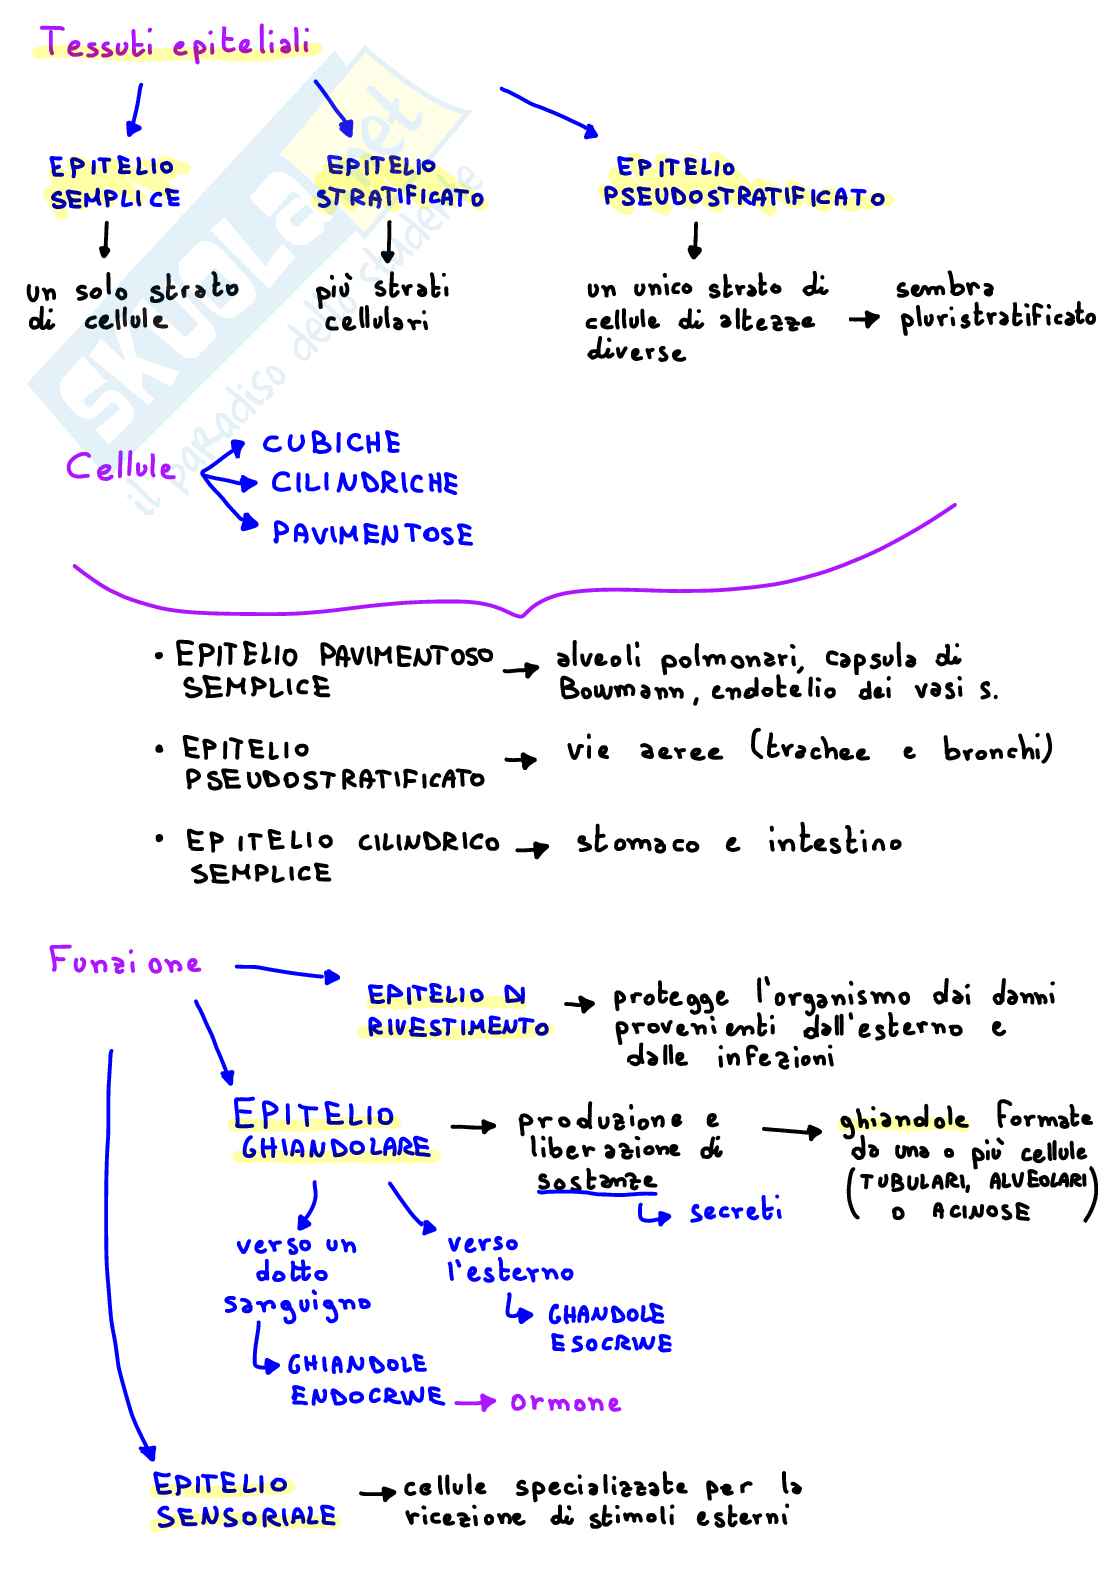 Tessuti epiteliali
EPITELIO
SEMPLICE
EPITELIO
STRATIFICATO
EPITELIO
PSEUDOSTRATIFICATO
un solo strato
di cellule
più strati
cellulari
un unico strato di
cellule di altezze
diverse
sembra
pluristratificato
SKUOLA.net
il paradiso dello studente
Cellule
CUBICHE
CILINDRICHE
PAVIMENTOSE
• EPITELIO PAVIMENTOSO
SEMPLICE
alveoli polmonari, capsula di
Bowmann, endotelio dei vasi s.
• EPITELIO
PSEUDOSTRATIFICATO
vie aeree (trachee e bronchi)
• EPITELIO CILINDRICO
SEMPLICE
stomaco e intestino
Funzione
EPITELIO DI
RIVESTIMENTO
protegge l'organismo dai danni
provenienti dall'esterno e
dalle infezioni
EPITELIO
GHIANDOLARE
produzione e
liberazione di
sostanze
secreti
ghiandole formate
da una o più cellule
(TUBULARI, ALVEOLARI
O ACINOSE)
verso un
dotto
sanguigno
verso
l'esterno
GHANDOLE
ESOCRINE
GHIANDOLE
ENDOCRINE
ormone
EPITELIO
SENSORIALE
cellule specializzate per la
ricezione di stimoli esterni